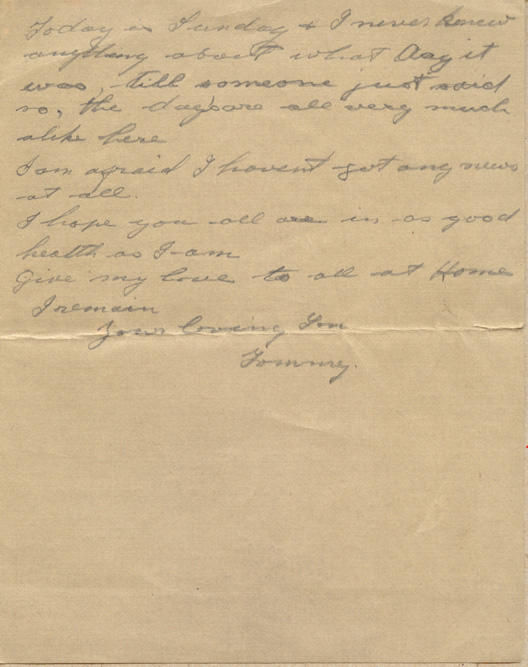 Today is Sunday & I never knew
anything about what day it
was, till someone just said
so, the days are all very much
alike here
I am afraid I havent got any news
at all.
I hope you all are in as good
health as I am
Give my love to all at Home
I remain
Your loving Son
Tommy.